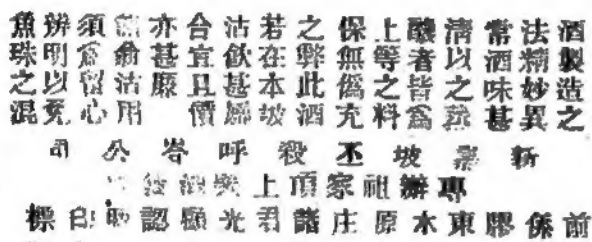 酒製造之
法精妙異
常酒味甚
清以之蒸
釀者皆為
上等之料
保無偽充
之弊此酒
若在本坡
沽飲甚屬
合宜且價
亦甚廉
翁沽用
須為留心
辨明以免
魚珠之混
新嘉坡丕殺呼岑公司
專辦祖家頂上
前係膠東水原庄諸君光顧認白標